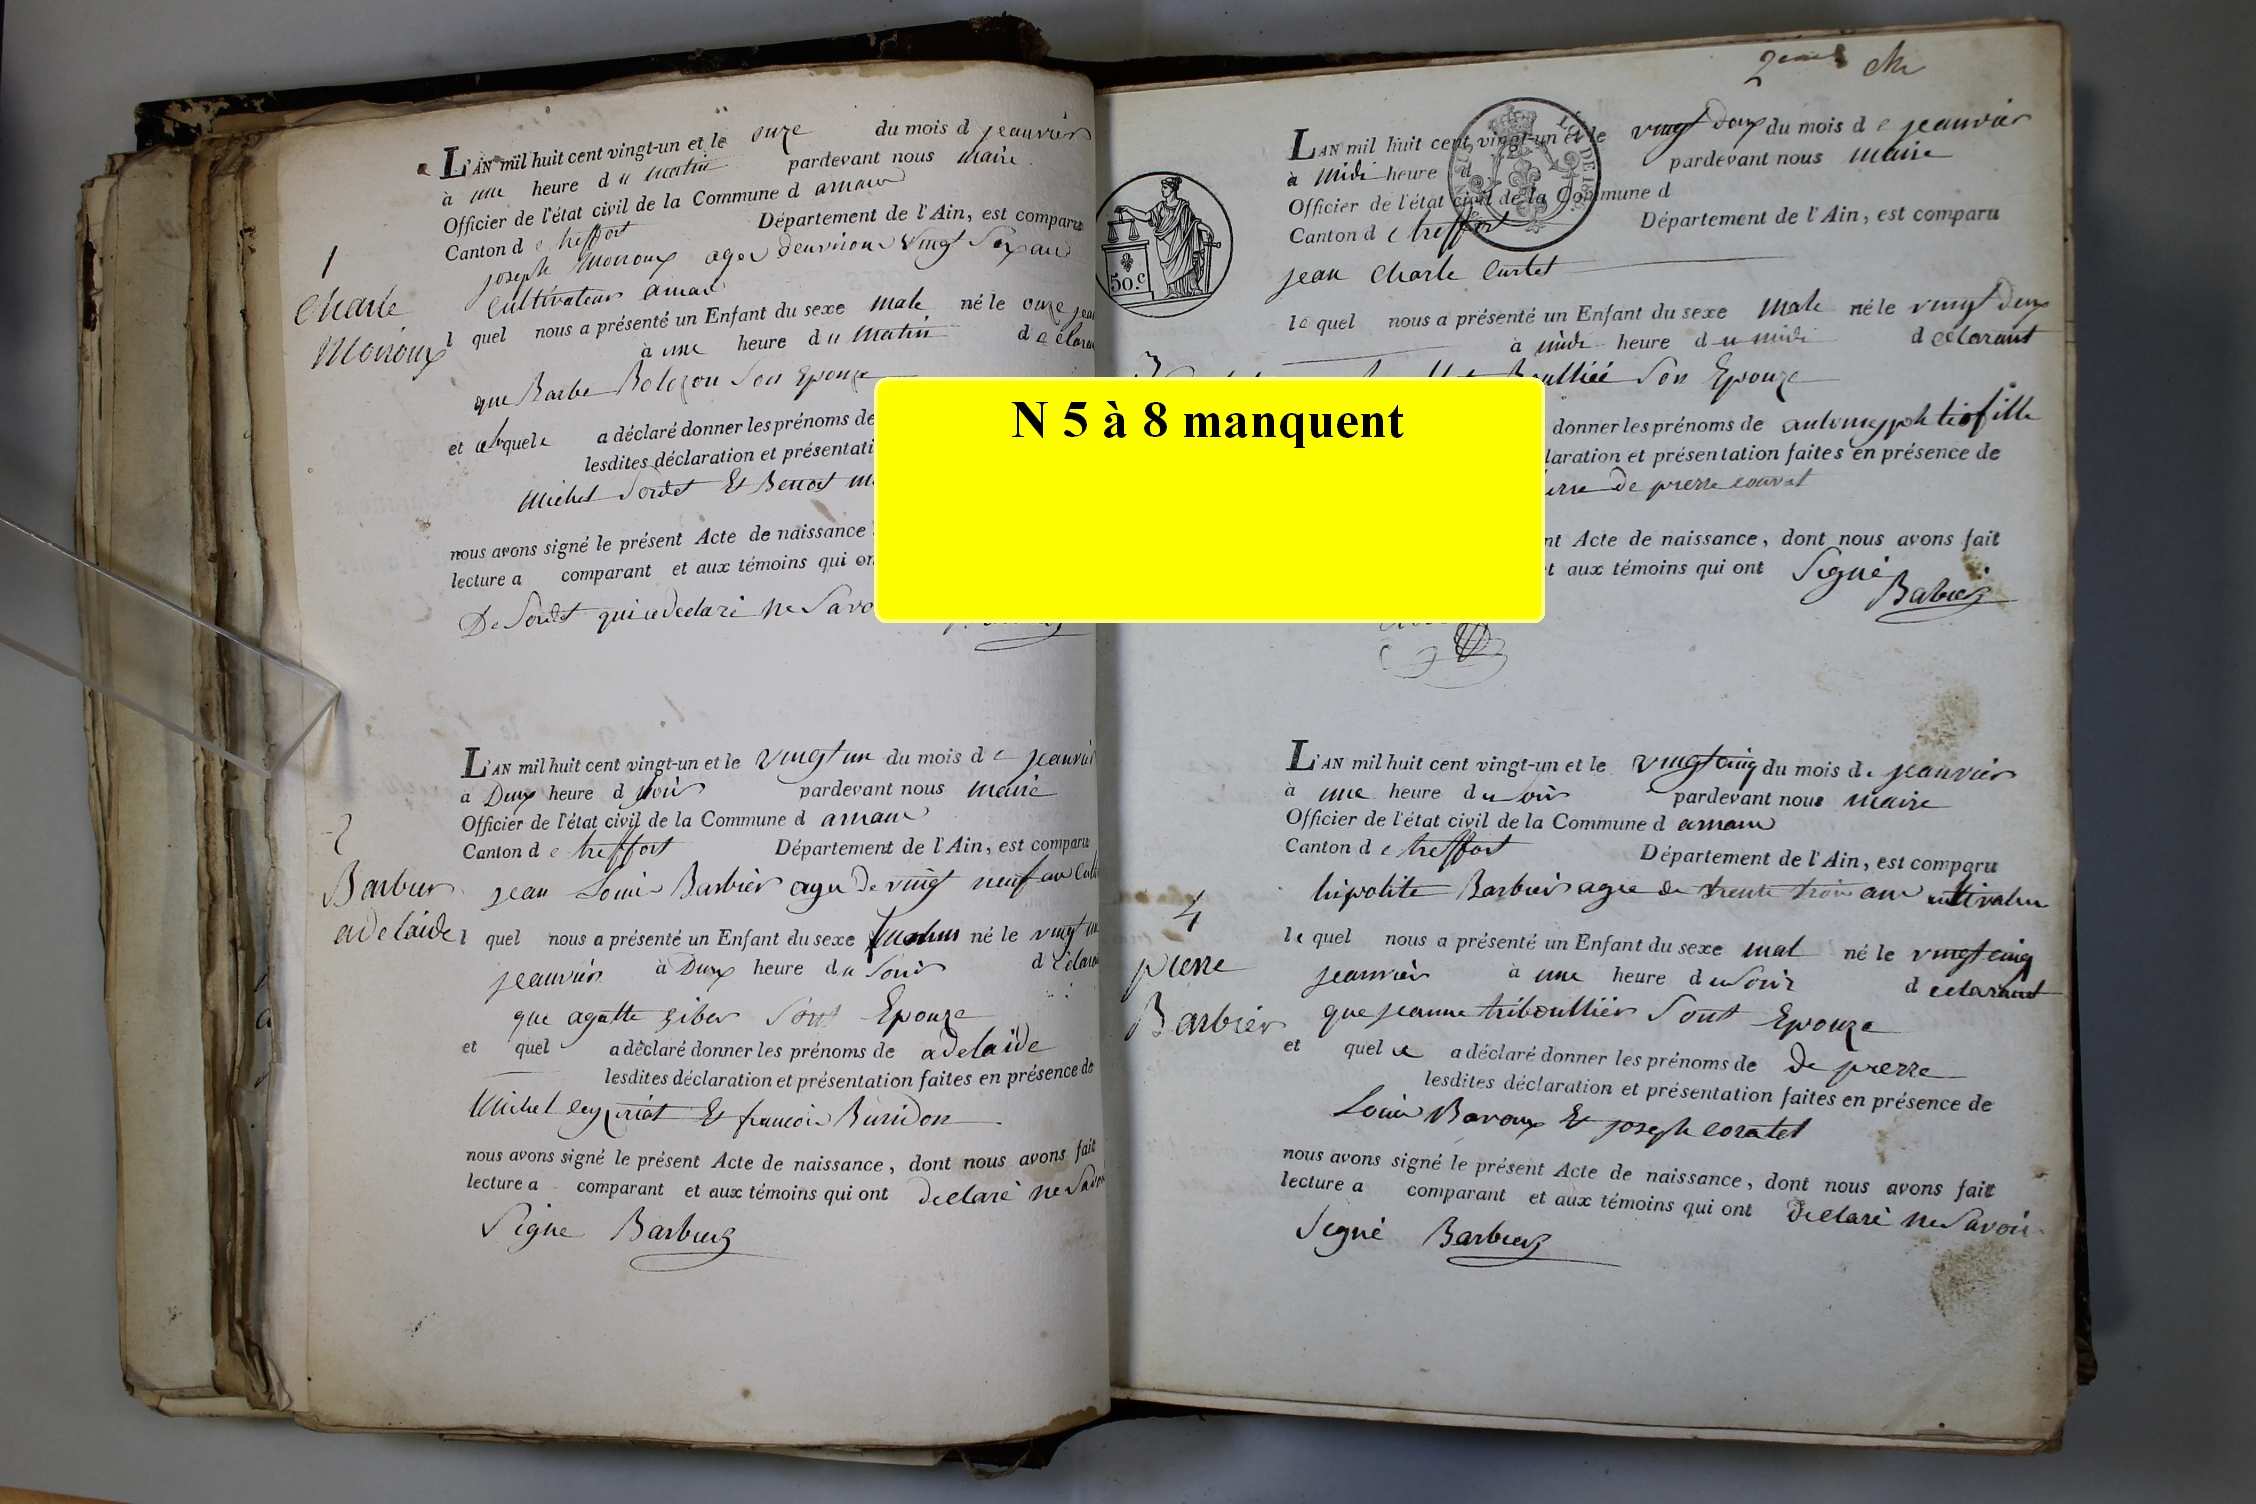 L'AN mil huit cent vingt-un et le onze du mois d jeanvier
à une heure du matin pardevant nous maire
Officier de l'état civil de la Commune d arnans
Canton de treffort Département de l'Ain, est comparu
joseph Moiroux agé d'environ vingt six ans
Cultivateur
l quel nous a présenté un Enfant du sexe male né le onze
à une heure du matin
que Barbe Bolozon Son Epouze
et quel a déclaré donner les prénoms de
lesdites déclaration et présentati
Michel Sordet Et Benoit
nous avons signé le présent Acte de naissance
lecture a comparant et aux témoins qui on
De Sordet qui a declaré ne Savo
1
Charle
Moiroux
L'AN mil huit cent vingt-un et le vingt un du mois de jeanvier
à Deux heure d soir pardevant nous maire
Officier de l'état civil de la Commune d arnans
Canton de treffort Département de l'Ain, est comparu
jean Louis Barbier agé de vingt neuf ans
l quel nous a présenté un Enfant du sexe né le vingt un
jeanvier à Deux heure du Soir
que agatte giber Sont Epouze
et quel a déclaré donner les prénoms de adelaide
lesdites déclaration et présentation faites en présence de
Michel Et francois Buridon
nous avons signé le présent Acte de naissance, dont nous avons fait
lecture a comparant et aux témoins qui ont declaré ne Savoir
Signe Barbier
2
Barbier
adelaide
2eme
50.c
LOI DE
L'AN mil huit cent vingt-un et le vingt Deux du mois de jeanvier
à Midi heure d pardevant nous maire
Officier de l'état civil de la Commune d
Canton de treffort Département de l'Ain, est comparu
jean Charle Curtet
le quel nous a présenté un Enfant du sexe male né le vingt Deux
à midi heure du midi declarant
Son Epouze
donner les prénoms de
laration et présentation faites en présence de
de pierre
nt Acte de naissance, dont nous avons fait
t aux témoins qui ont Signé
Barbier
N 5 à 8 manquent
L'AN mil huit cent vingt-un et le vingt cinq du mois de jeanvier
à une heure du Soir pardevant nous maire
Officier de l'état civil de la Commune d arnans
Canton de treffort Département de l'Ain, est comparu
hipolite Barbier agee de trente trois ans cultivateur
le quel nous a présenté un Enfant du sexe mal né le vingt cinq
jeanvier à une heure du Soir declarant
que jeanne triboullier Sont Epouze
et quel a déclaré donner les prénoms de de pierre
lesdites déclaration et présentation faites en présence de
Louis Bavoux Et joseph coratel
nous avons signé le présent Acte de naissance, dont nous avons fait
lecture a comparant et aux témoins qui ont declaré ne Savoir
Signé Barbier
4
pierre
Barbier